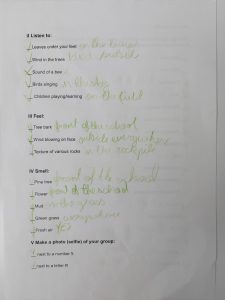 II Listen to:
Leaves under your feet in the trees
Wind in the trees
Sound of a tree
Birds singing in the sky
Children playing/learning on the field
III Feel:
Tree bark front of the school
Wind blowing on face outside everywhere
Texture of various rocks in the rock pile
IV Smell:
Pine tree front of the school
Flower front of the school
Mud in the grass
Green grass everywhere
Fresh air yes
V Make a photo (selfie) of your group:
next to a number 5
next to a letter R